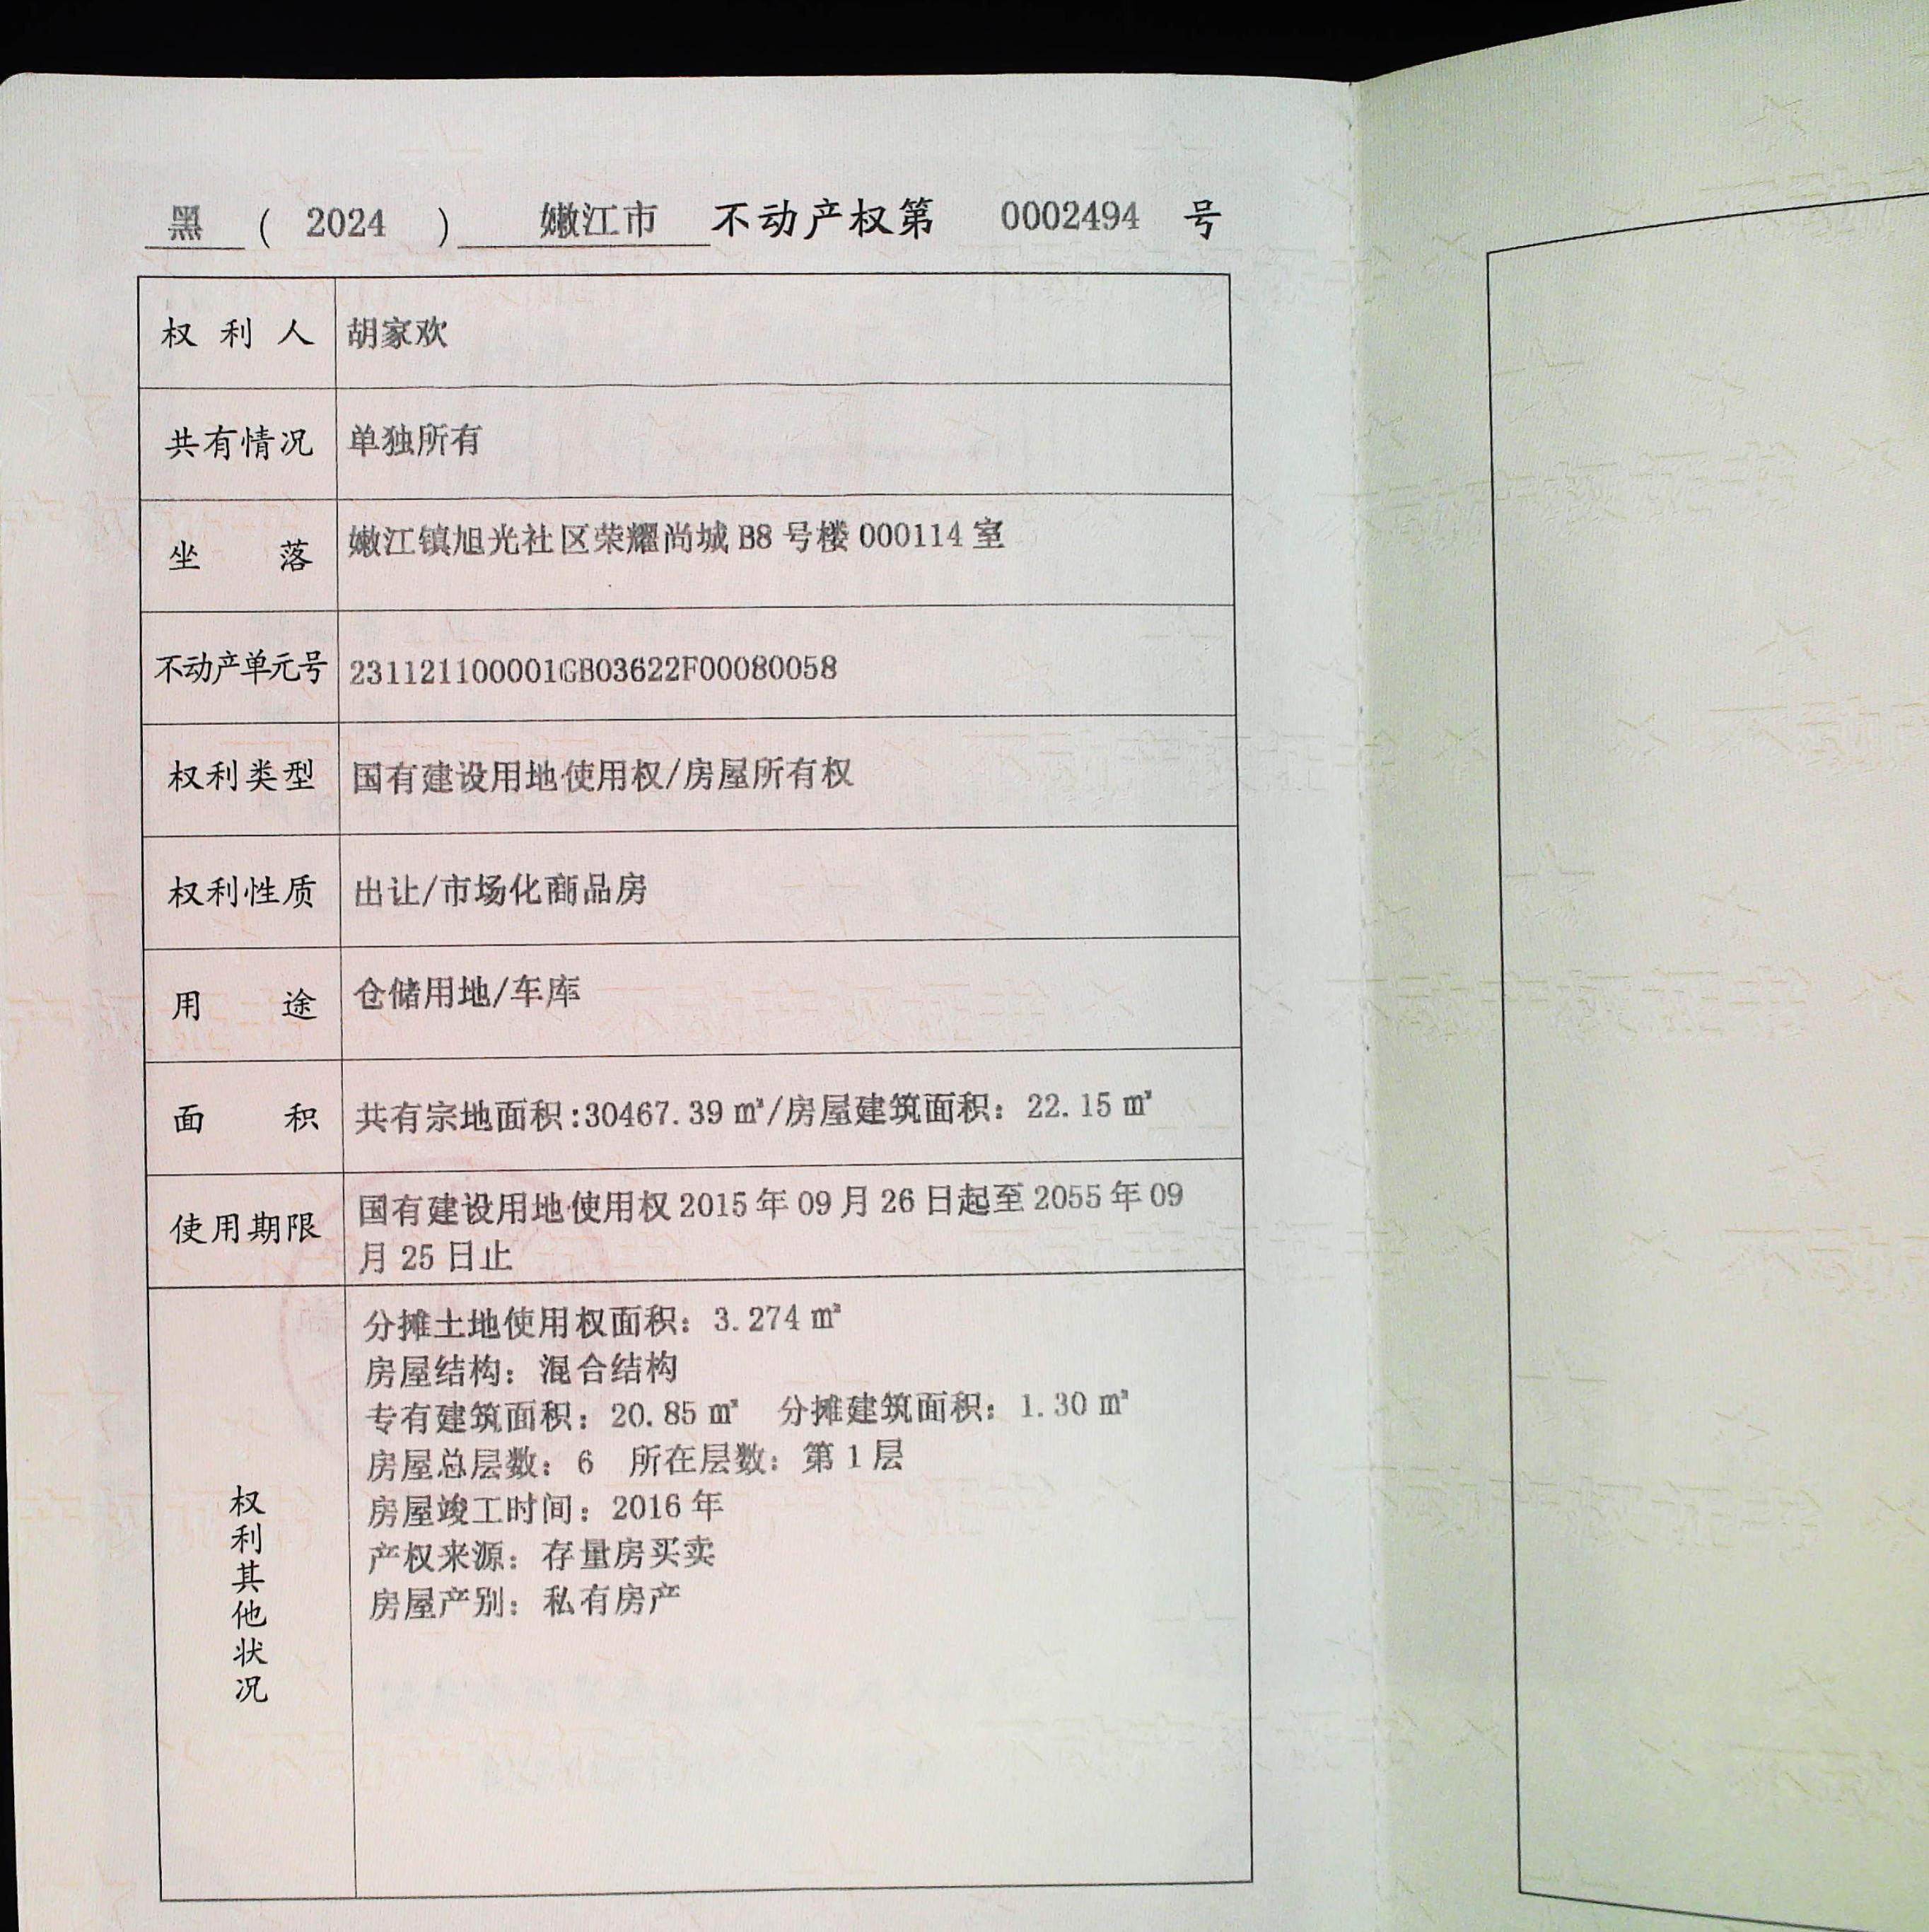 黑 ( 2024 ) 嫩江市 不动产权第 0002494 号
权利人 胡家欢
共有情况 单独所有
坐落 嫩江镇旭光社区荣耀尚城 B8 号楼 000114 室
不动产单元号 231121100001GB03622F00080058
权利类型 国有建设用地使用权/房屋所有权
权利性质 出让/市场化商品房
用途 仓储用地/车库
面积 共有宗地面积:30467.39 ㎡/房屋建筑面积：22.15 ㎡
使用期限 国有建设用地使用权 2015 年 09 月 26 日起至 2055 年 09
月 25 日止
权利其他状况
分摊土地使用权面积：3.274 ㎡
房屋结构：混合结构
专有建筑面积：20.85 ㎡ 分摊建筑面积：1.30 ㎡
房屋总层数：6 所在层数：第 1 层
房屋竣工时间：2016 年
产权来源：存量房买卖
房屋产别：私有房产